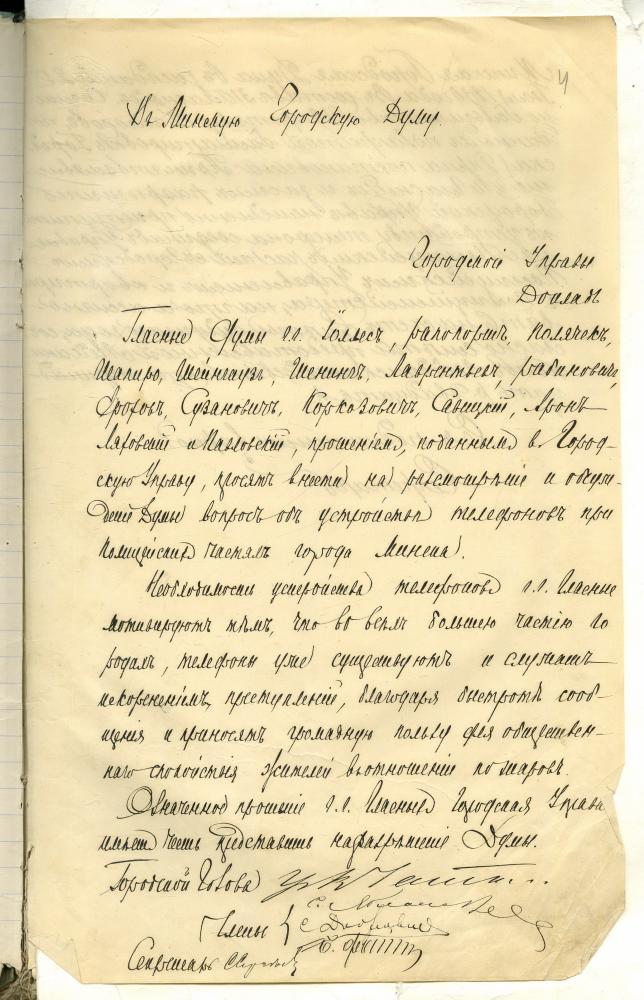 4
Въ Минскую Городскую Думу.
Городской Управы
Докладъ
Гласные Думы г.г. Голлесъ, Рапопортъ, Полячекъ,
Шапиро, Шейнгаузъ, Шенингъ, Лаврентьевъ, Рабиновичъ,
Фроловъ, Сузановичъ, Коркозовичъ, Савицкій, Аронъ
Ляховскій и Мазловскій, прошеніемъ, поданнымъ въ Город-
скую Управу, просятъ внести на разсмотрѣніе и обсуж-
деніе Думы вопросъ объ устройствѣ телефоновъ при
полицейскихъ частяхъ города Минска.
Необходимость устройства телефона г.г. Гласные
мотивируютъ тѣмъ, что во всѣхъ большею частію го
родахъ, телефоны уже существуютъ и служатъ
искорененіемъ преступленій, благодаря быстротѣ сооб-
щенія и приносятъ громадную пользу для обществен-
наго спокойствія жителей въ отношеніи пожаровъ.
Означенное прошеніе г.г. Гласныхъ Городская Управа
имѣетъ честь представить на разрѣшеніе Думы.
Городской Голова
Члены
Секретарь